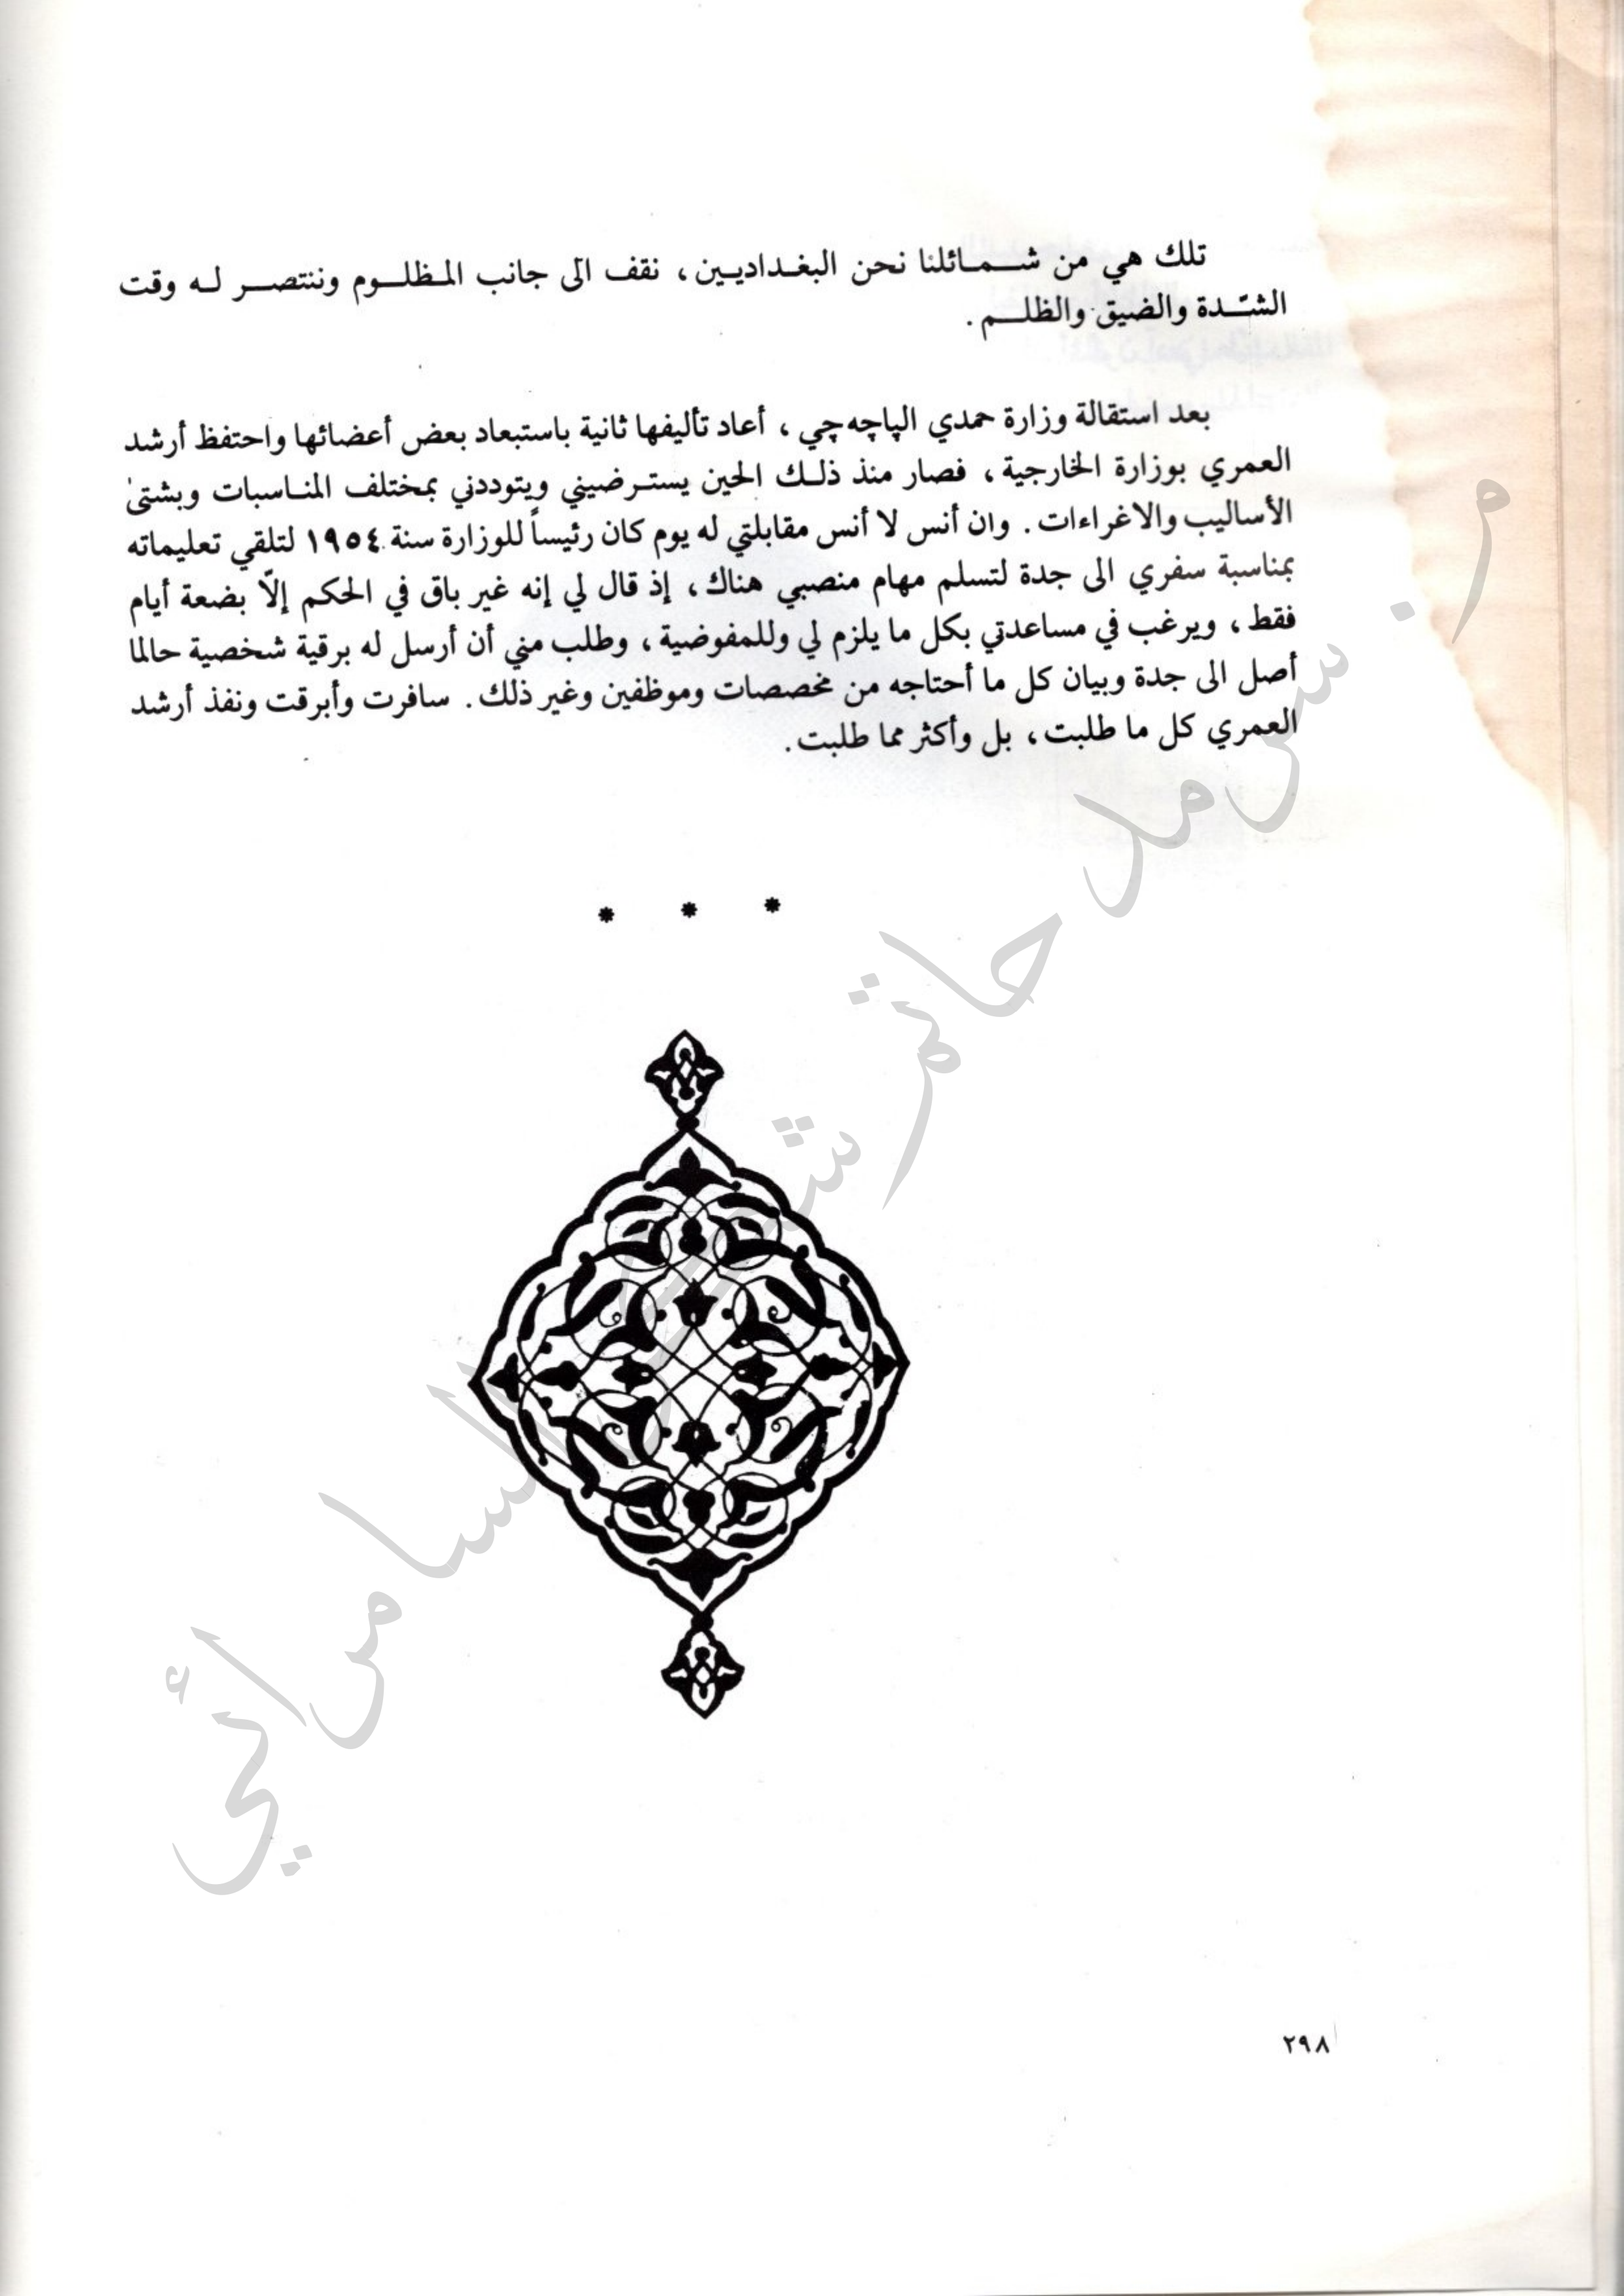 تلك هي من شمائلنا نحن البغداديين، نقف الى جانب المظلوم وننتصر له وقت
الشدّة والضيق والظلم.
بعد استقالة وزارة حمدي الپاچه‌چي، أعاد تأليفها ثانية باستبعاد بعض أعضائها واحتفظ أرشد
العمري بوزارة الخارجية، فصار منذ ذلك الحين يسترضيني ويتوددني بمختلف المناسبات وبشتىٰ
الأساليب والاغراءات. وان أنس لا أنس مقابلتي له يوم كان رئيساً للوزارة سنة ١٩٥٤ لتلقي تعليماته
بمناسبة سفري الى جدة لتسلم مهام منصبي هناك، إذ قال لي إنه غير باق في الحكم إلّا بضعة أيام
فقط، ويرغب في مساعدتي بكل ما يلزم لي وللمفوضية، وطلب مني أن أرسل له برقية شخصية حالما
أصل الى جدة وبيان كل ما أحتاجه من مخصصات وموظفين وغير ذلك. سافرت وأبرقت ونفذ أرشد
العمري كل ما طلبت، بل وأكثر مما طلبت.
* * *
من سرمد حاتم شكر السامرائي
٢٩٨